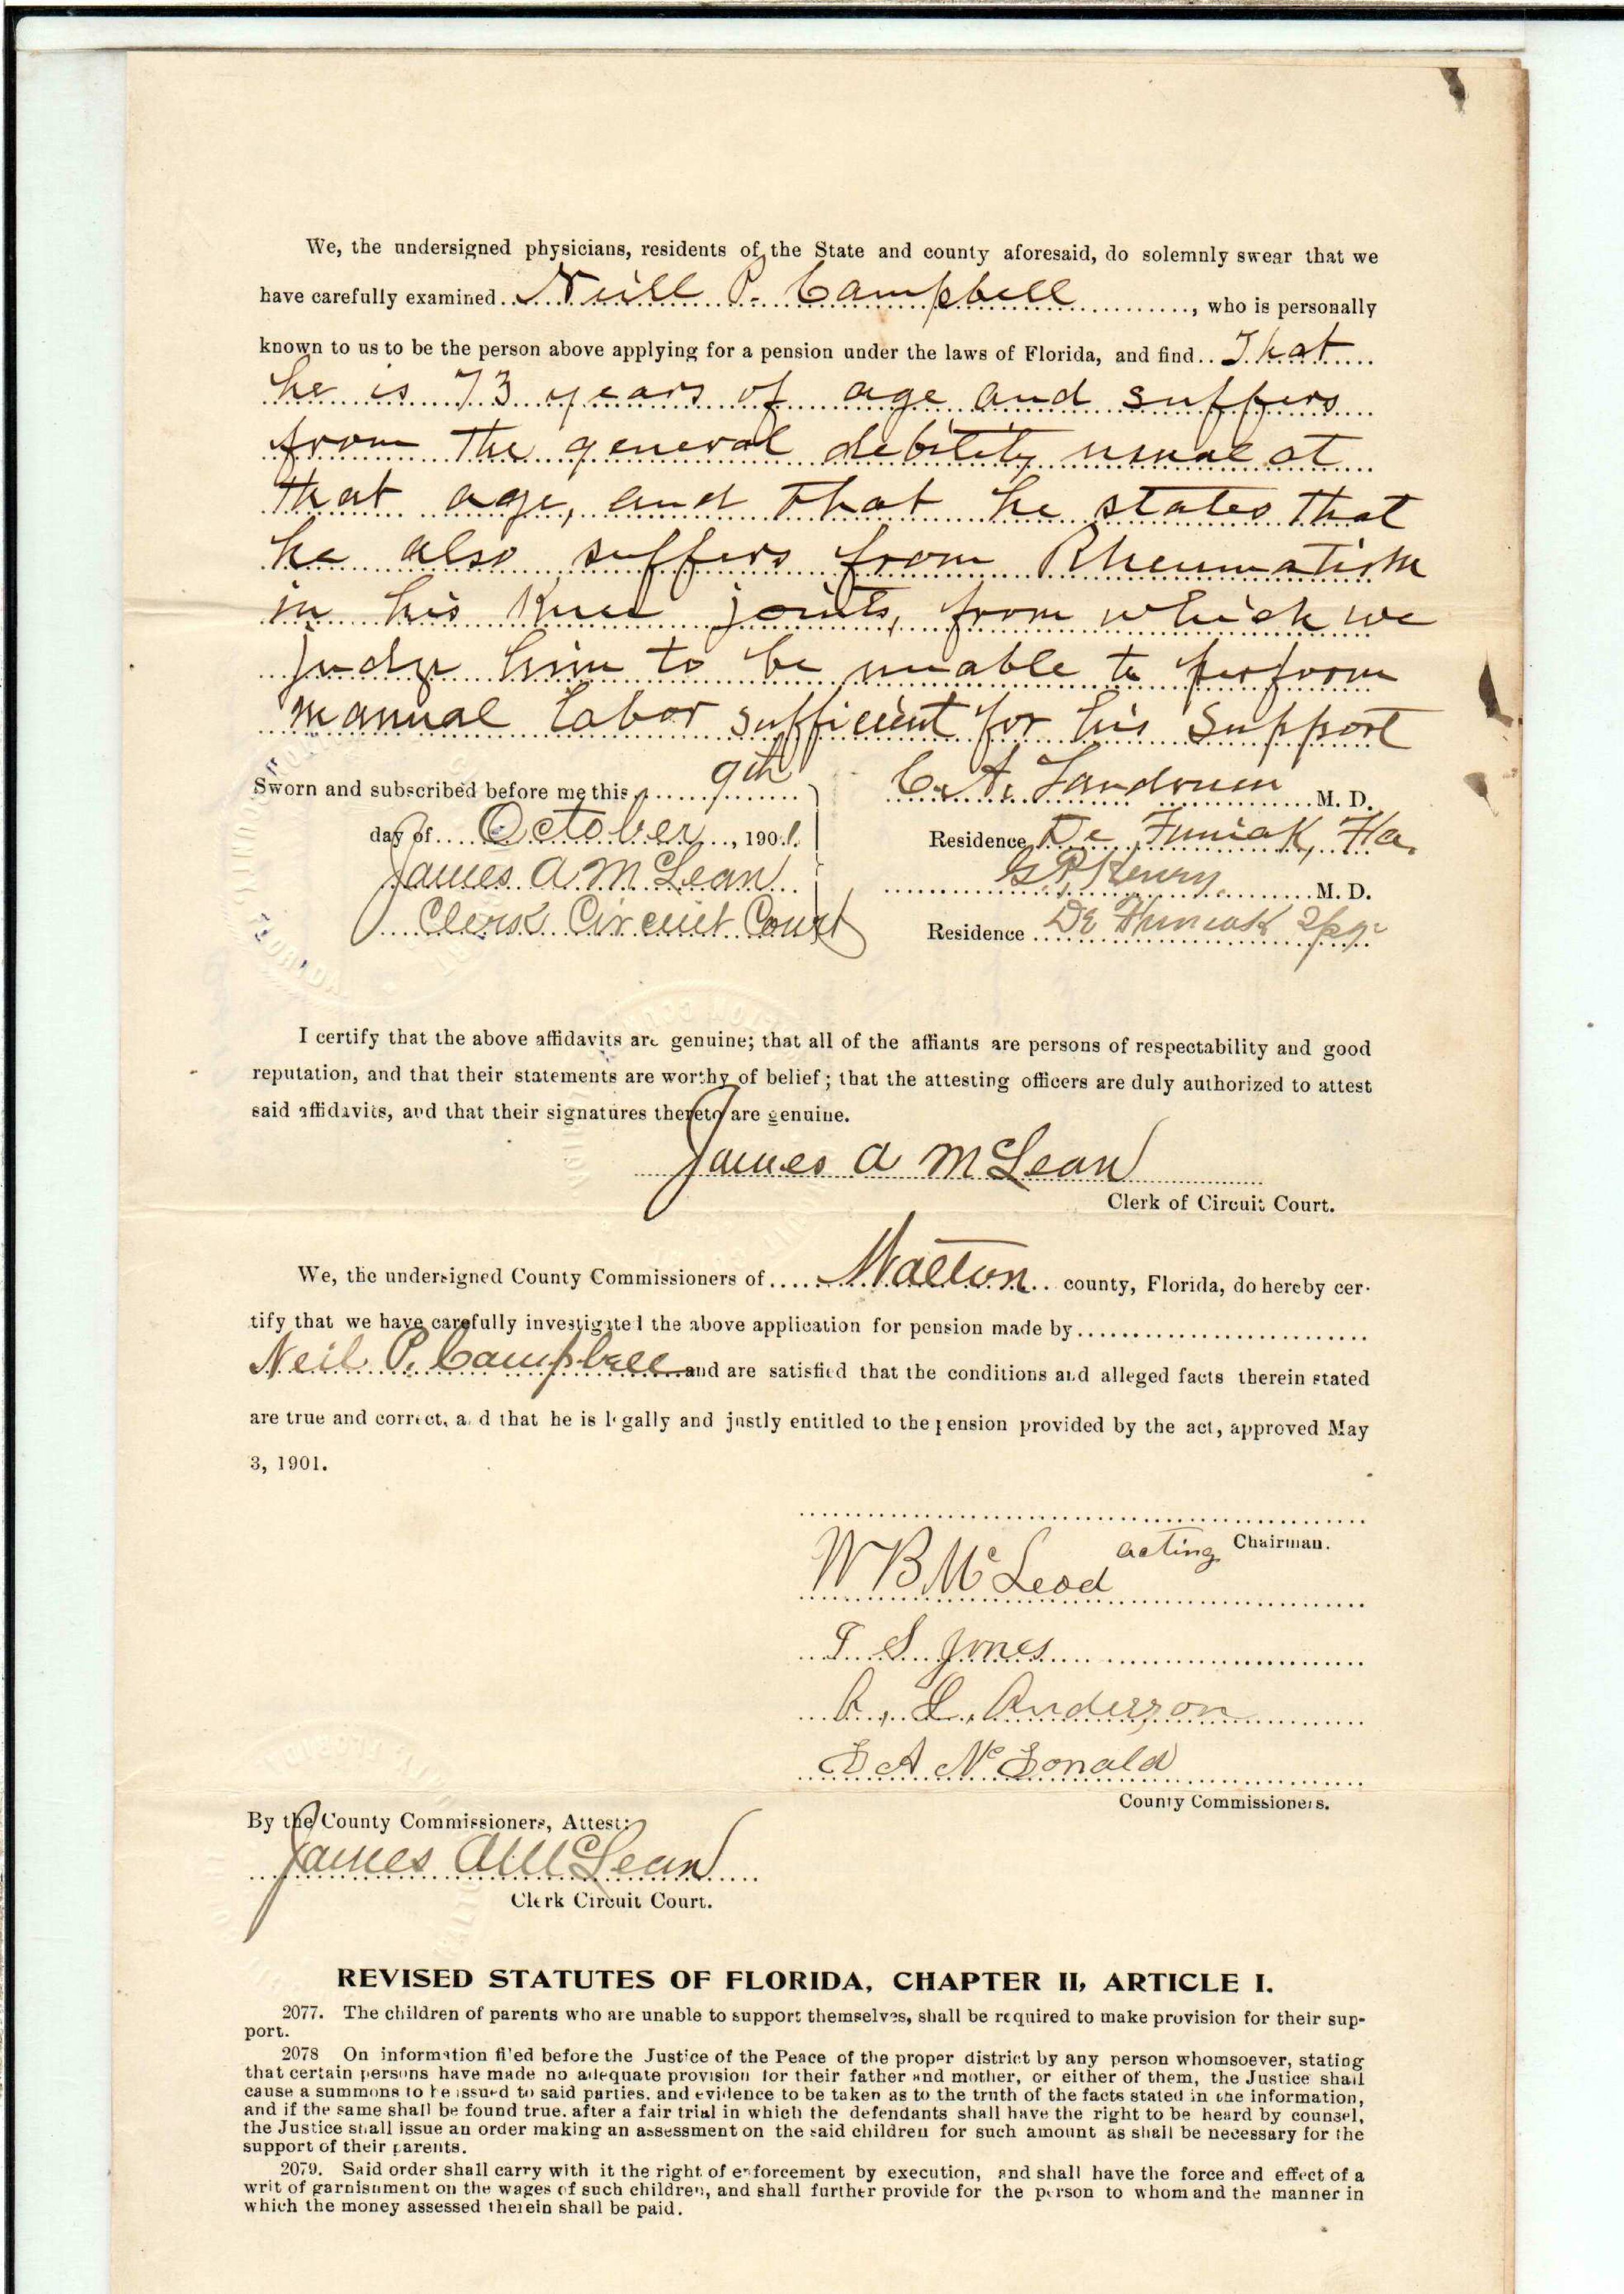 We, the undersigned physicians, residents of the State and county aforesaid, do solemnly swear that we
have carefully examined Neill P. Campbell, who is personally
known to us to be the person above applying for a pension under the laws of Florida, and find That
he is 73 years of age and suffers
from the general debility usual at
that age, and that he states that
he also suffers from Rheumatism
in his Knee joints, from which we
judge him to be unable to perform
manual labor sufficient for his support
Sworn and subscribed before me this 9th
day of October, 1901.
James A McLean
Clerk Circuit Court
C. A. Landrum M. D.
Residence De Funiak, Fla.
G P Henry M. D.
Residence De Funiak Spgs
I certify that the above affidavits are genuine; that all of the affiants are persons of respectability and good
reputation, and that their statements are worthy of belief; that the attesting officers are duly authorized to attest
said affidavits, and that their signatures thereto are genuine.
James A McLean
Clerk of Circuit Court.
We, the undersigned County Commissioners of Walton county, Florida, do hereby cer-
tify that we have carefully investigated the above application for pension made by
Neil P. Campbell and are satisfied that the conditions and alleged facts therein stated
are true and correct, and that he is legally and justly entitled to the pension provided by the act, approved May
3, 1901.
acting Chairman.
W B McLeod
T. S. Jones
A. L. Anderson
D A McDonald
County Commissioners.
By the County Commissioners, Attest:
James A McLean
Clerk Circuit Court.
REVISED STATUTES OF FLORIDA, CHAPTER II, ARTICLE I.
2077. The children of parents who are unable to support themselves, shall be required to make provision for their sup-
port.
2078 On information filed before the Justice of the Peace of the proper district by any person whomsoever, stating
that certain persons have made no adequate provision for their father and mother, or either of them, the Justice shall
cause a summons to be issued to said parties, and evidence to be taken as to the truth of the facts stated in the information,
and if the same shall be found true, after a fair trial in which the defendants shall have the right to be heard by counsel,
the Justice shall issue an order making an assessment on the said children for such amount as shall be necessary for the
support of their parents.
2079. Said order shall carry with it the right of enforcement by execution, and shall have the force and effect of a
writ of garnishment on the wages of such children, and shall further provide for the person to whom and the manner in
which the money assessed therein shall be paid.